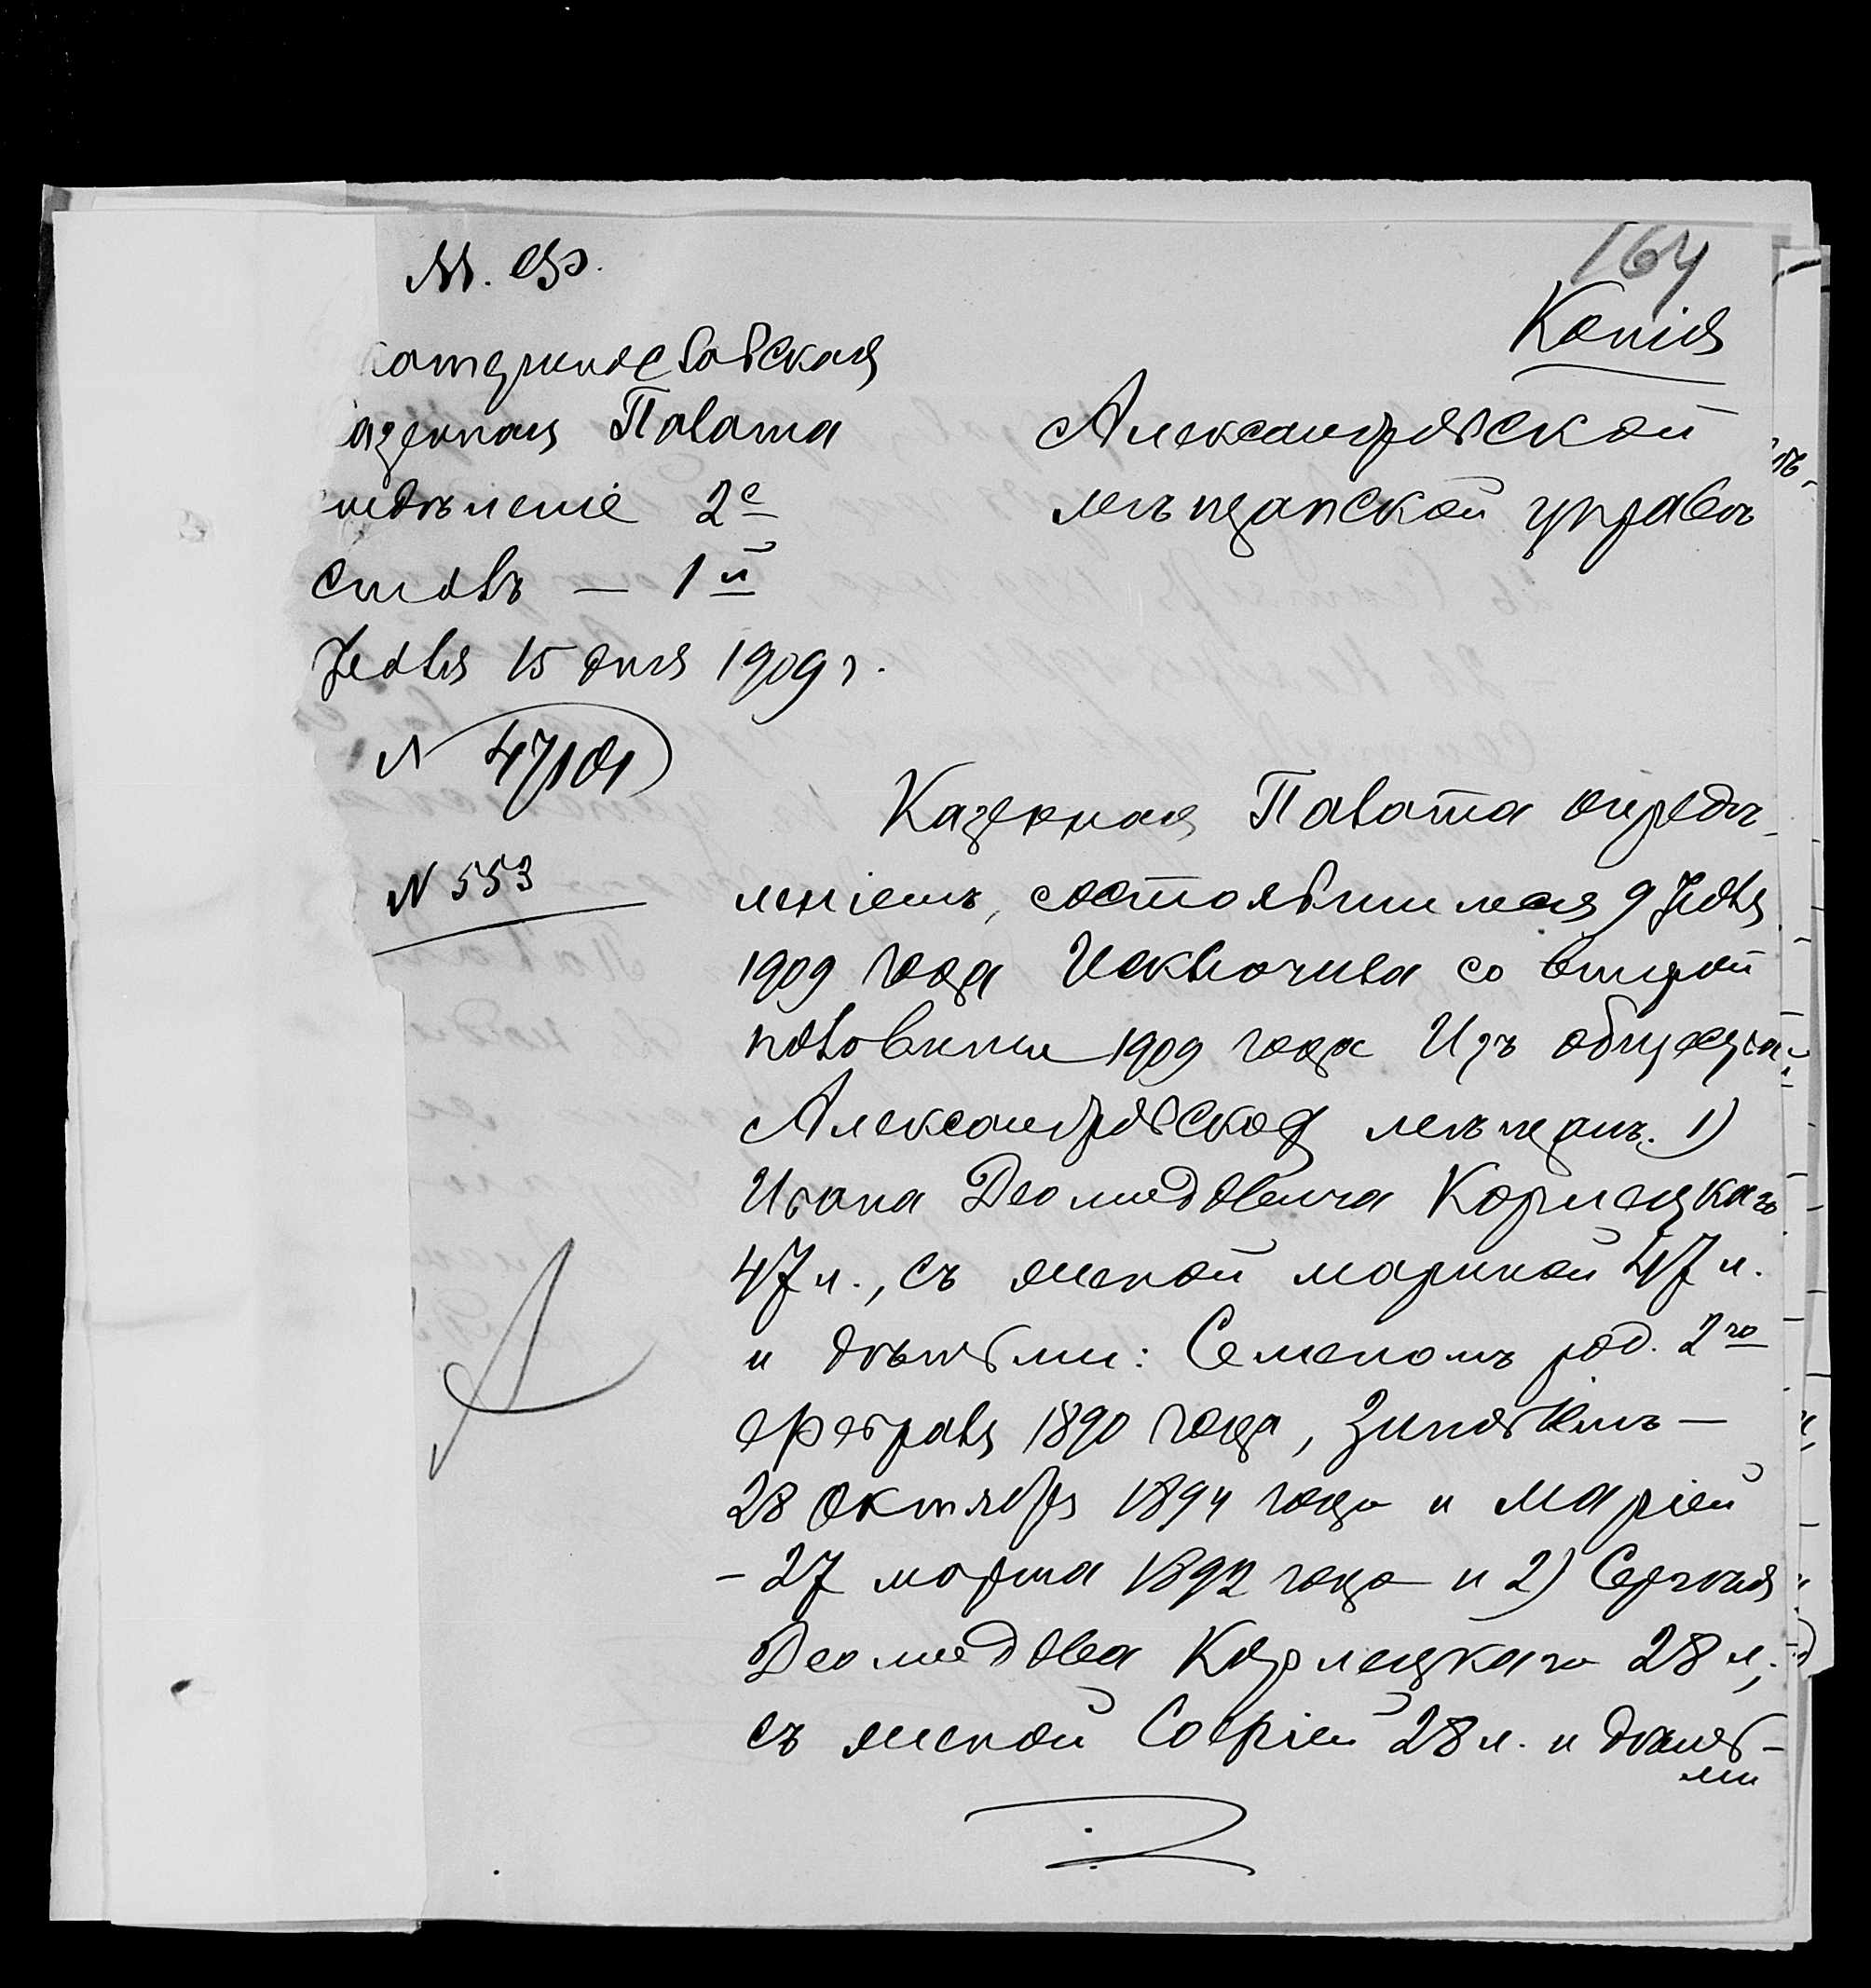 М. Ф.
164
Копія
катеринославская
азенная Палата
тдѣленіе 2е
столъ — 1й
Іюля 15 дня 1909 г.
N 47101
N 553
Александровской
мѣщанской управѣ
Казенная Палата опредѣ-
леніемъ, состоявшимся 9 Іюля
1909 года Исключила со второй
половины 1909 года Изъ общества
Александровской мѣщанъ. 1)
Ивана Деомидовича Кормецкаго
47 л., съ женой Мариной 47 л.
и дѣтьми: Семеномъ род. 2го
февраля 1890 года, Зиновіемъ —
28 октября 1894 года и Маріей
— 27 марта 1892 года и 2) Сергѣя
Деомидова Кормецкаго 28 л.,
съ женой Софіей 28 л. и дѣтьми